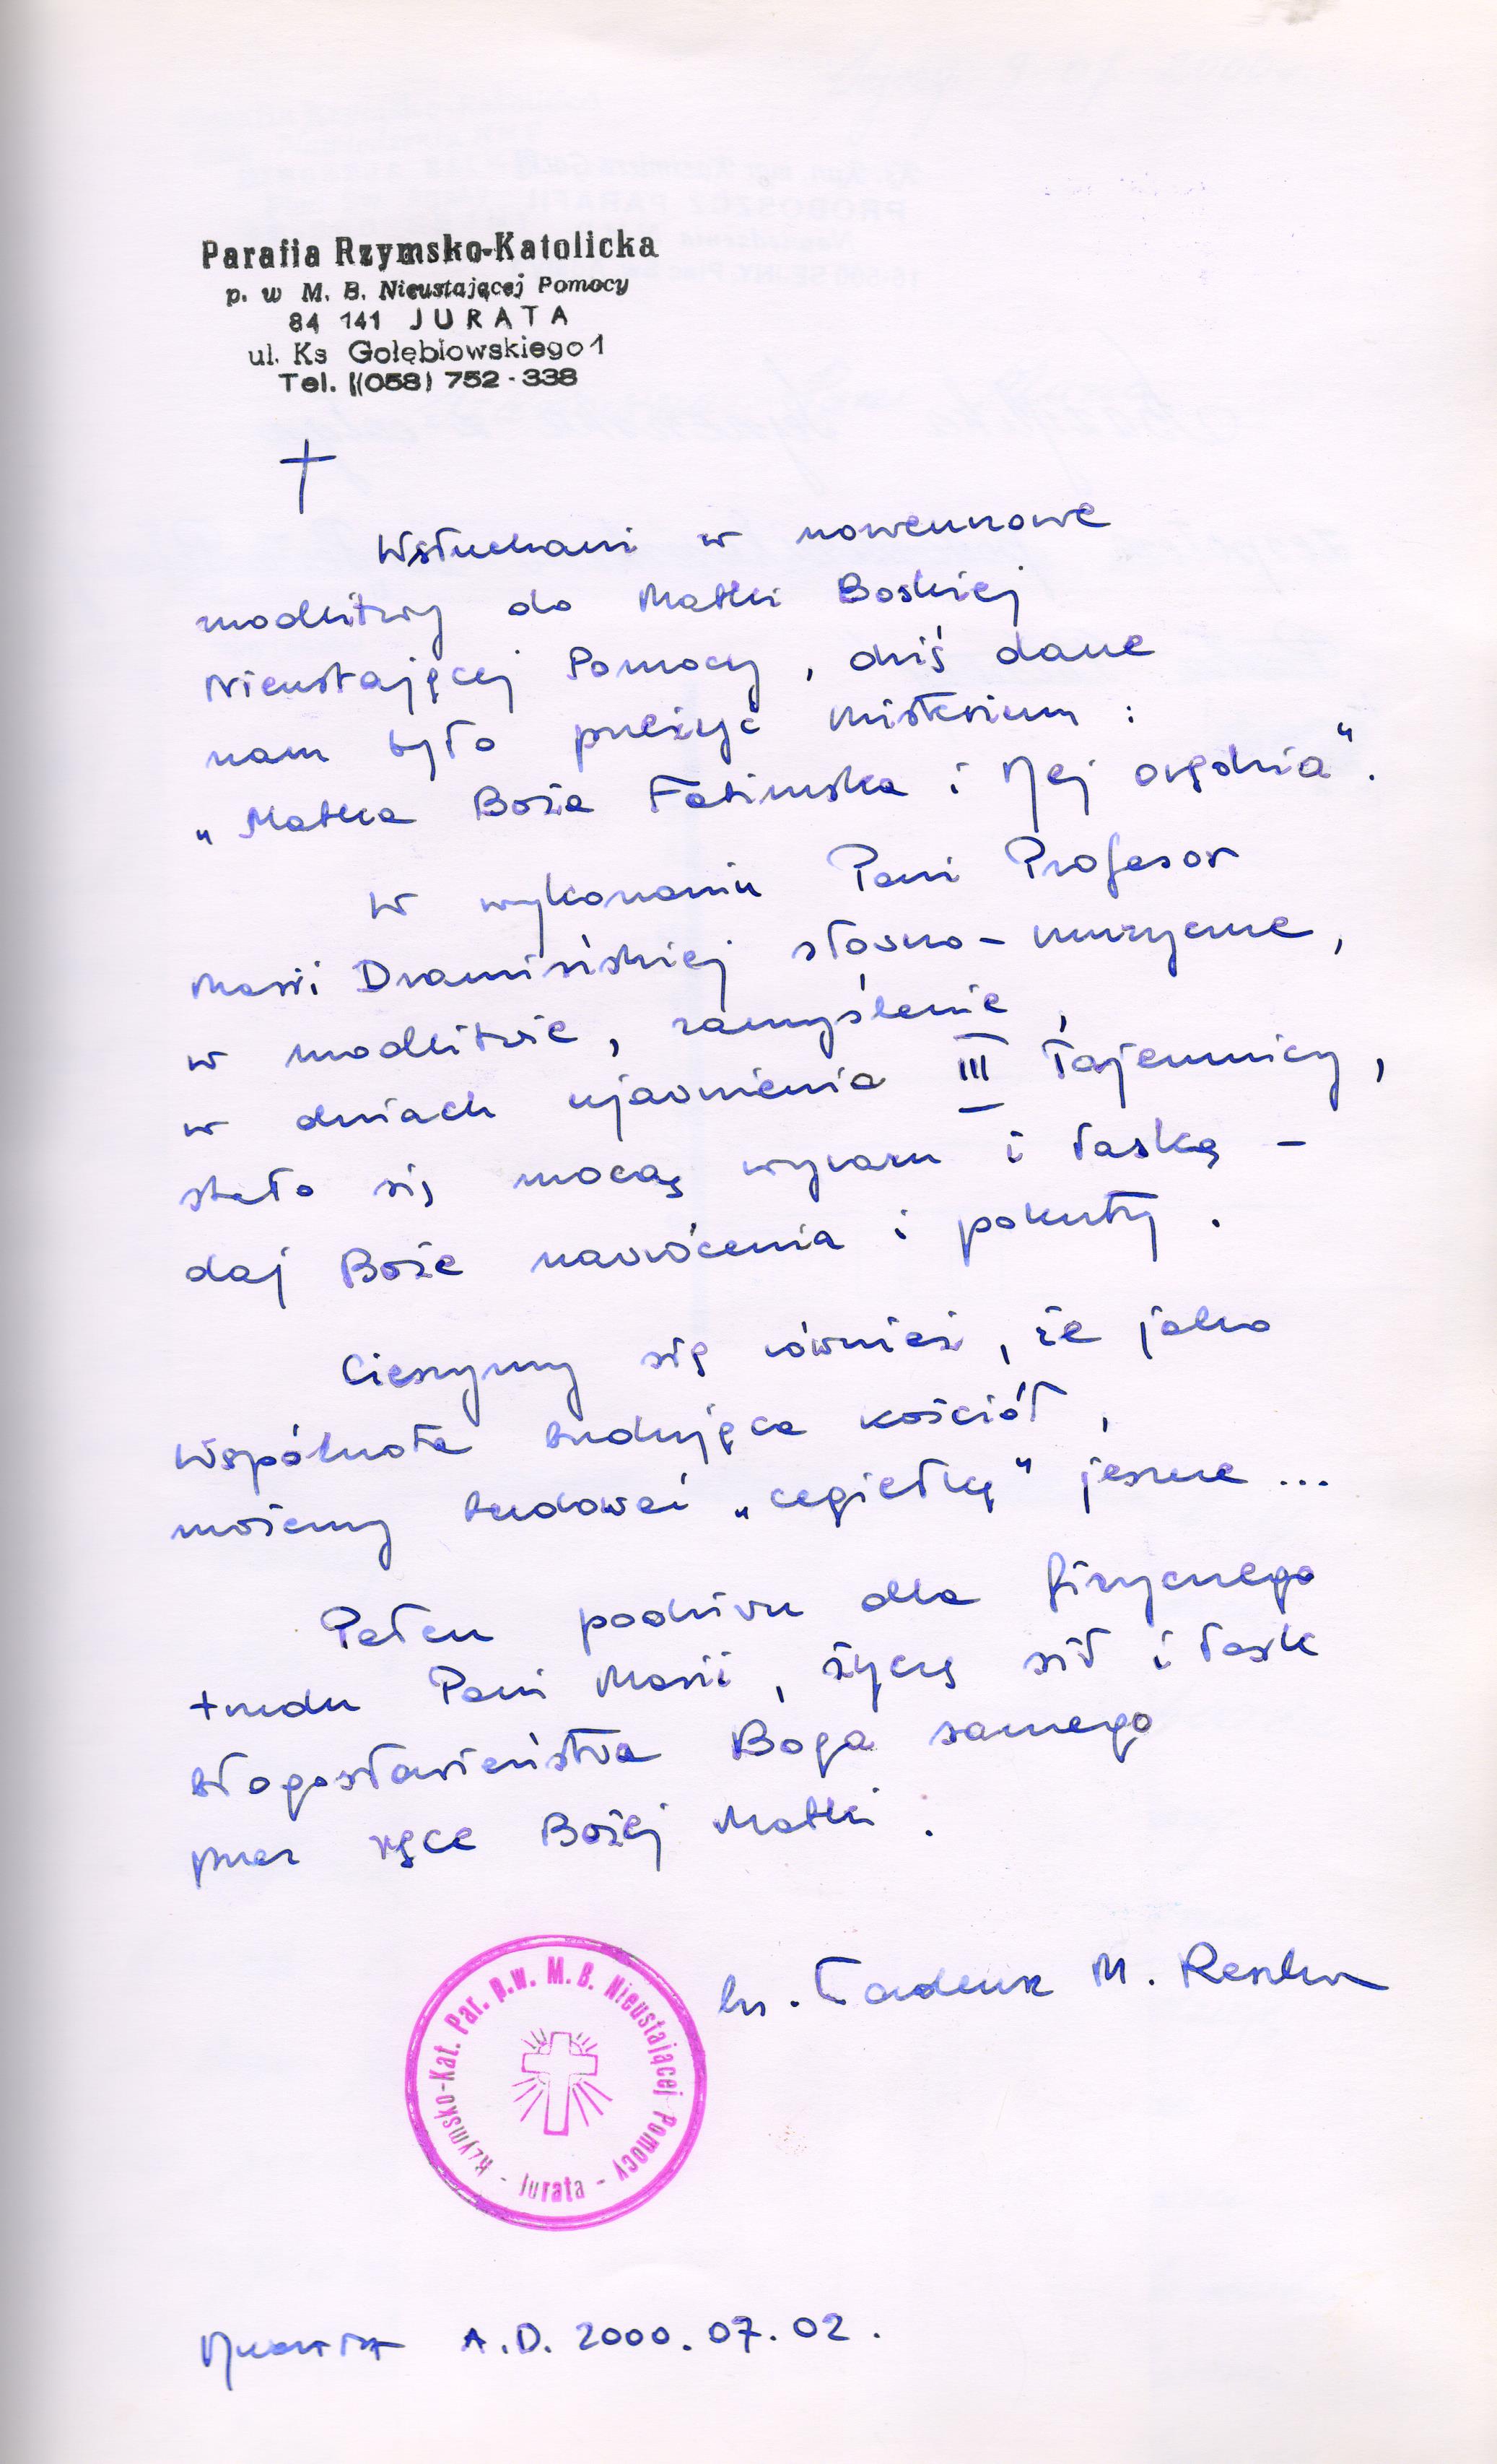 Parafia Rzymsko-Katolicka
p. w M. B. Nieustającej Pomocy
84 141 JURATA
ul. Ks Gołębiowskiego 1
Tel. ((058) 752-338
Wsłuchani w nowennowe
modlitwy do Matki Boskiej
Nieustającej Pomocy, dziś dane
nam było przeżyć misterium :
„Matka Boża Fatimska i Jej orędzia".
W wykonaniu Pani Profesor
Marii Dramińskiej słowno-muzyczne,
w modlitwie, zamyślenie,
w dniach ujawnienia III Tajemnicy,
stało się mocą wyrazu i łaską -
daj Boże nawrócenia i pokuty.
Cieszymy się również, że jako
Wspólnota budująca kościół,
możemy budować „cegiełką" jeszcze ...
Pełen podziwu dla fizycznego
trudu Pani Marii, życzę sił i łask
błogosławieństwa Boga samego
przez ręce Bożej Matki.
ks. Tadeusz M. Reszka
Rzymsko-Kat. Par. p.w. M.B. Nieustającej Pomocy - Jurata -
Jurata A.D. 2000.07.02.